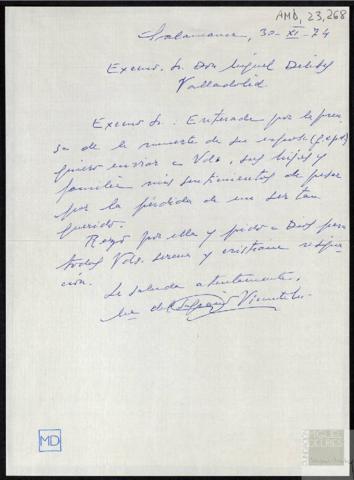 AMD, 23, 268
Salamanca, 30-XI-74
Excmo. Sr. Don Miguel Delibes
Valladolid
Excmo Sr. Enterada por la pren
sa de la muerte de su esposa (q.e.p.d.)
quiero enviar a Vds, sus hijos y
familia mis sentimientos de pesar
por la pérdida de un ser tan
querido.
Rezo por ella y pido a Dios para
todos Vds. serena y cristiana resigna-
ción.
Le saluda atentamente,
Mª del
MD
FUNDACIÓN
MIGUEL
DELIBES